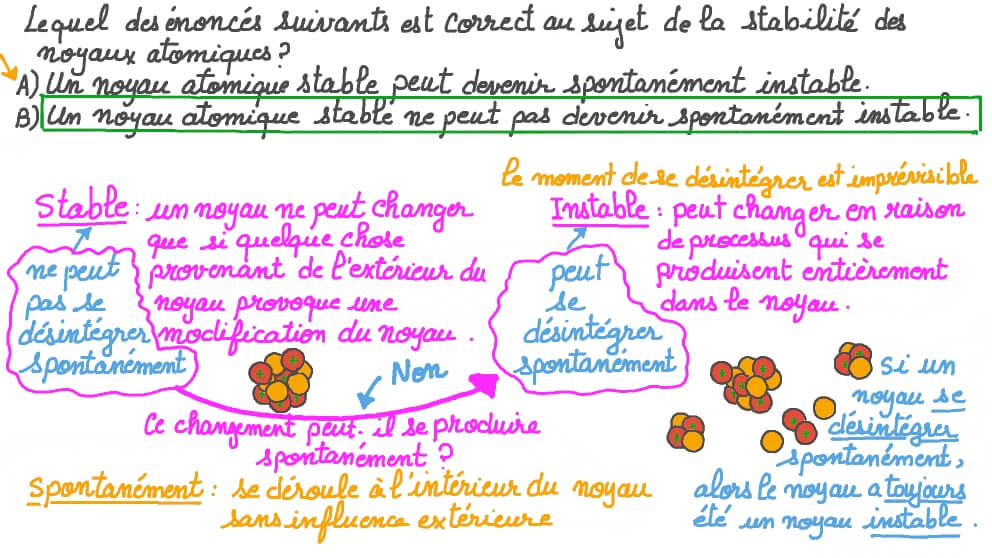 Lequel des énoncés suivants est correct au sujet de la stabilité des
noyaux atomiques ?
A) Un noyau atomique stable peut devenir spontanément instable.
B) Un noyau atomique stable ne peut pas devenir spontanément instable.
le moment de se désintégrer est imprévisible
Stable : un noyau ne peut changer
que si quelque chose
provenant de l'extérieur du
noyau provoque une
modification du noyau.
ne peut
pas se
désintégrer
spontanément
Instable : peut changer en raison
de processus qui se
produisent entièrement
dans le noyau.
peut
se
désintégrer
spontanément
Non
Ce changement peut-il se produire
spontanément ?
Spontanément : se déroule à l'intérieur du noyau
sans influence extérieure
Si un
noyau se
désintégrer
spontanément,
alors le noyau a toujours
été un noyau instable.